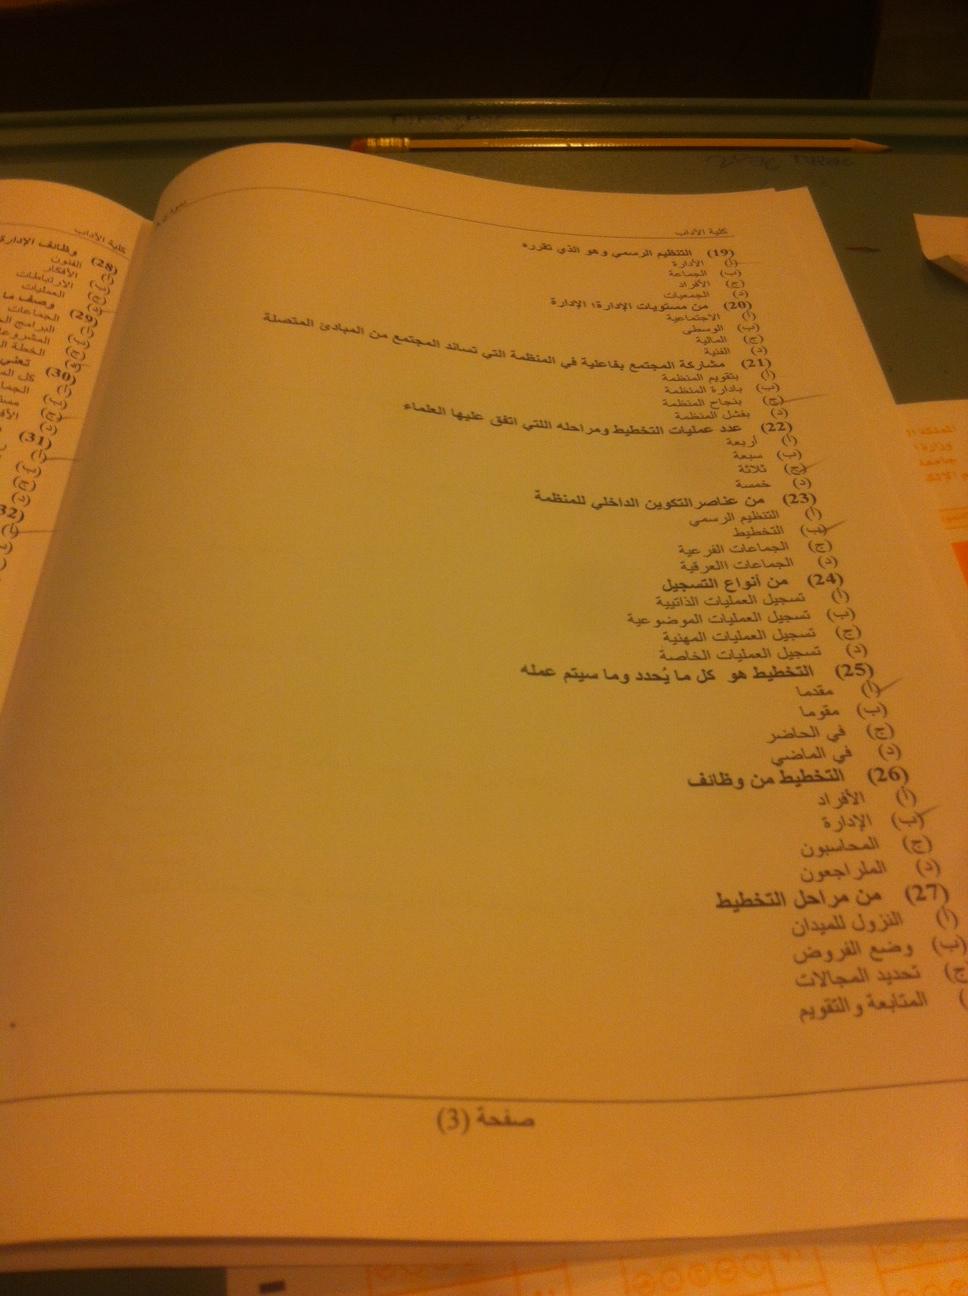 كلية الآداب
(19) التنظيم الرسمي وهو الذي تقرره
(أ) الإدارة
(ب) الجماعة
(ج) الأفراد
(د) الجمعيات
(20) من مستويات الإدارة؛ الإدارة
(أ) الاجتماعية
(ب) الوسطى
(ج) المالية
(د) الفنية
(21) مشاركة المجتمع بفاعلية في المنظمة التي تساند المجتمع من المبادئ المتصلة
(أ) بتقويم المنظمة
(ب) بإدارة المنظمة
(ج) بنجاح المنظمة
(د) بفشل المنظمة
(22) عدد عمليات التخطيط ومراحله اللتي اتفق عليها العلماء
(أ) أربعة
(ب) سبعة
(ج) ثلاثة
(د) خمسة
(23) من عناصر التكوين الداخلي للمنظمة
(أ) التنظيم الرسمي
(ب) التخطيط
(ج) الجماعات الفرعية
(د) الجماعات االعرقية
(24) من أنواع التسجيل
(أ) تسجيل العمليات الذاتيية
(ب) تسجيل العمليات الموضوعية
(ج) تسجيل العمليات المهنية
(د) تسجيل العمليات الخاصة
(25) التخطيط هو كل ما يُحدد وما سيتم عمله
(أ) مقدما
(ب) مقوما
(ج) في الحاضر
(د) في الماضي
(26) التخطيط من وظائف
(أ) الأفراد
(ب) الإدارة
(ج) المحاسبون
(د) الملراجعون
(27) من مراحل التخطيط
(أ) النزول للميدان
(ب) وضع الفروض
(ج) تحديد المجالات
المتابعة والتقويم
صفحة (3)
كلية الآداب
(28) وظائف الإدارة
الفنون
الأفكار
الارتباطات
العمليات
(29) وصف ما
الجماعات
البرامج
الخطة
(30) تعني
(31)